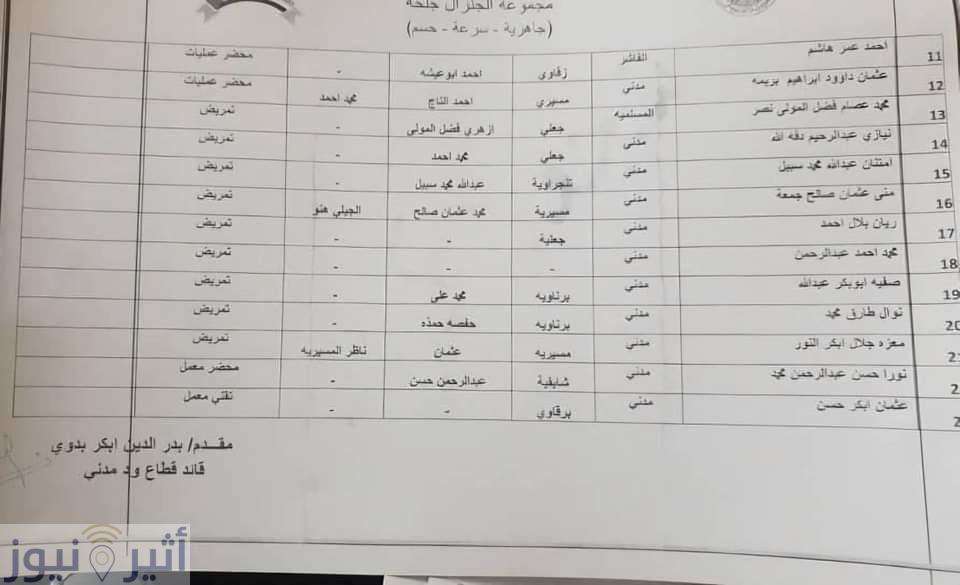 مجموعة الجنرال جلحة
(جاهزية - سرعة - حسم)
11 احمد عمر هاشم الفاشر زقاوي احمد ابوعيشه - محضر عمليات
12 عثمان داوود ابراهيم بريمه مدني مسيري احمد التاج محمد احمد محضر عمليات
13 محمد عصام فضل المولى نصر المسلميه جعلي ازهري فضل المولى - تمريض
14 نيازي عبدالرحيم دفه الله مدني جعلي محمد احمد - تمريض
15 امتنان عبدالله محمد سبيل مدني تنجراوية عبدالله محمد سبيل - تمريض
16 منى عثمان صالح جمعة مدني مسيرية محمد عثمان صالح الجيلي هنو تمريض
17 ريان بلال احمد مدني جعلية - - تمريض
18 محمد احمد عبدالرحمن مدني - - - تمريض
19 صفيه ابوبكر عبدالله مدني برناويه محمد على - تمريض
20 نوال طارق محمد مدني برناويه حفصه حمذه - تمريض
معزه جلال ابكر النور مدني مسيريه عثمان ناظر المسيريه تمريض
نورا حسن عبدالرحمن محمد مدني شايقية عبدالرحمن حسن - محضر معمل
عثمان ابكر حسن مدني برقاوي - - تقني معمل
مقدم/ بدر الدين ابكر بدوي
قائد قطاع ود مدني
أثير نيوز